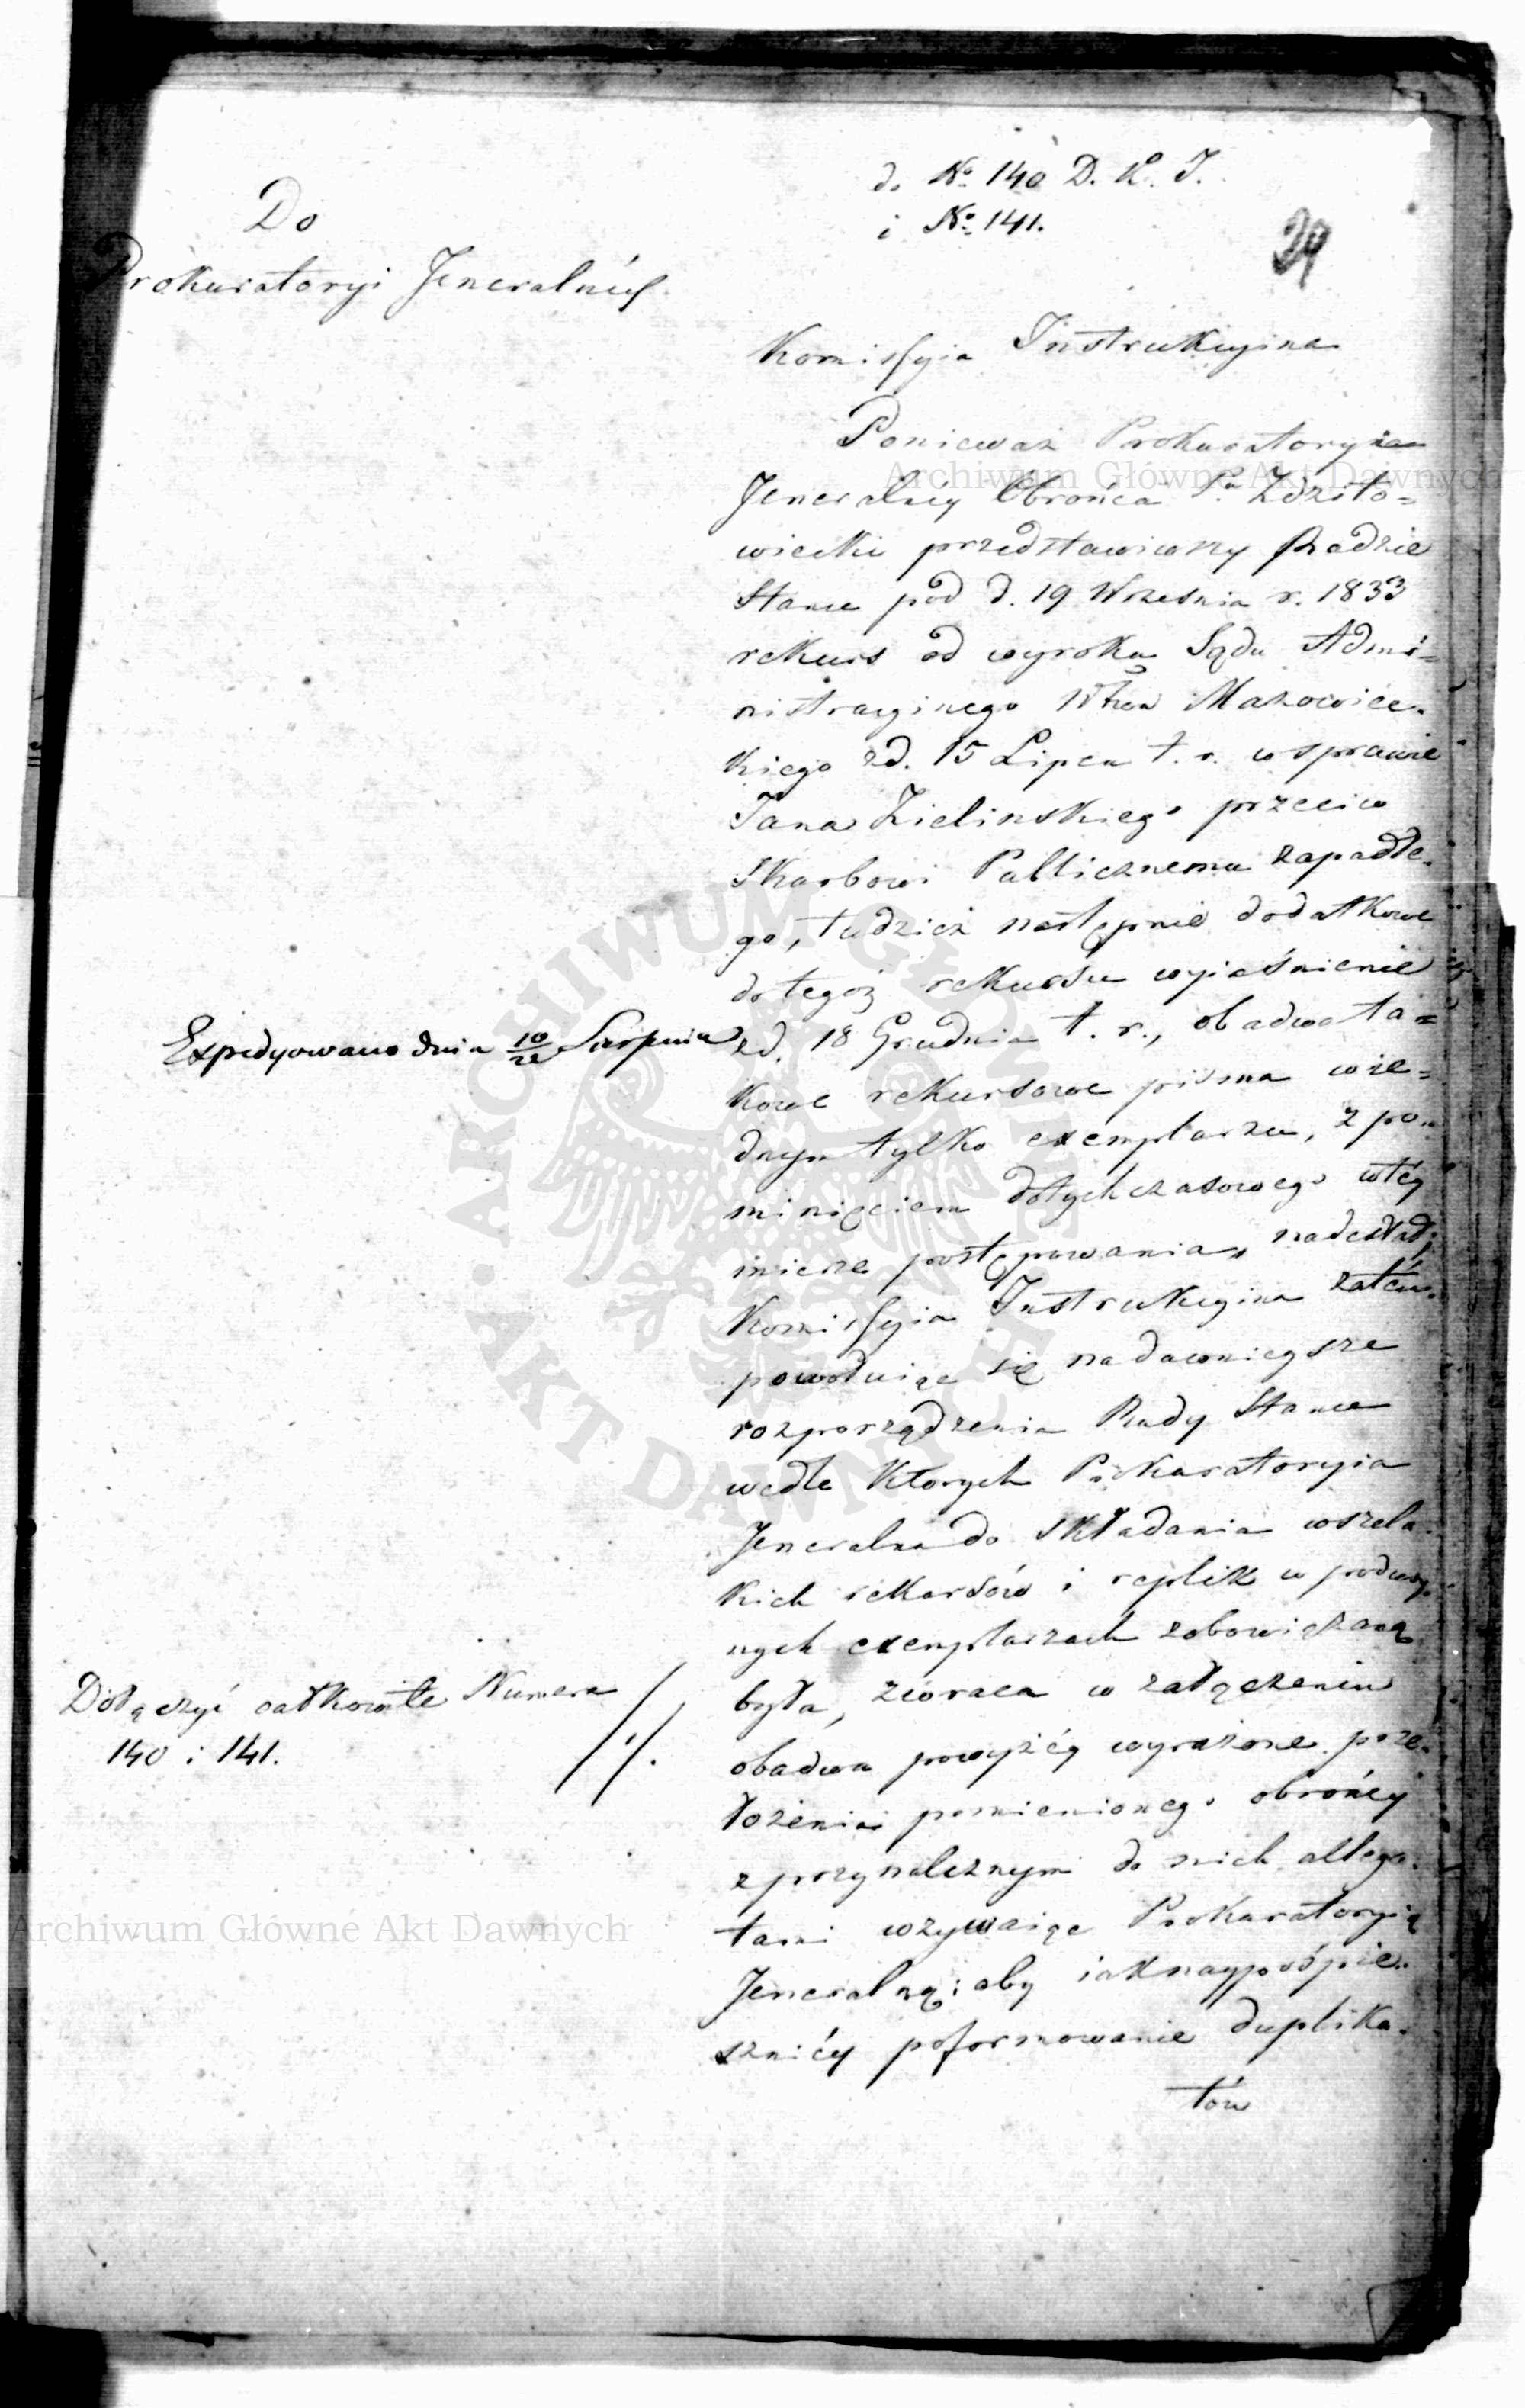 do No. 140 D. K. I.
i No. 141.
29
Do
Prokuratoryi Jeneralnéy
Komissyia Instrukcyina
Ponieważ Prokuratoryi
Jeneralnéy Obrońca Pn Zdzito=
wiecki przedstawiony Radzie
Stanu pod d. 19 Września r. 1833
rekurs od wyroku Sądu Admi=
nistracyinego Wztwa Mazowiec=
kiego z d. 15 Lipca t. r. w sprawie
Jana Zielinskiego przeciw
Skarbowi Publicznemu zapadłe=
go, tudzież następnie dodatkowe
do tegoż rekursu wyiaśnienie
z d. 18 Grudnia t. r., obadwa ta=
kowe rekursowe pisma w ie=
dnym tylko exemplarzu, z po=
minięciem dotychczasowego w téy
mierze postępowania, nadesłał;
Komissyia Instrukcyina zatém
powołuiąc się na dawnieysze
rozporządzenia Rady Stanu
wedle których Prokuratoryia
Jeneralna do składania wszela=
kich rekursów i replik w podwóy=
nych exemplarzach zobowiązaną
była, zwraca w załączeniu
obadwa powyżéy wyrażone prze=
łożenia pomienionego obrońcy
z przynależnymi do nich allega=
tami wzywaiąc Prokuratoryią
Jeneralną: aby iaknayspospie=
sznićy poformowanie duplika=
tów
Expedyowano dnia 10/22 Sierpnia
Dołączyć całkowite Numera
140 i 141.
//.
Archiwum Główne Akt Dawnych
Archiwum Główne Akt Dawnych
ARCHIWUM GŁÓWNE • AKT DAWNYCH •